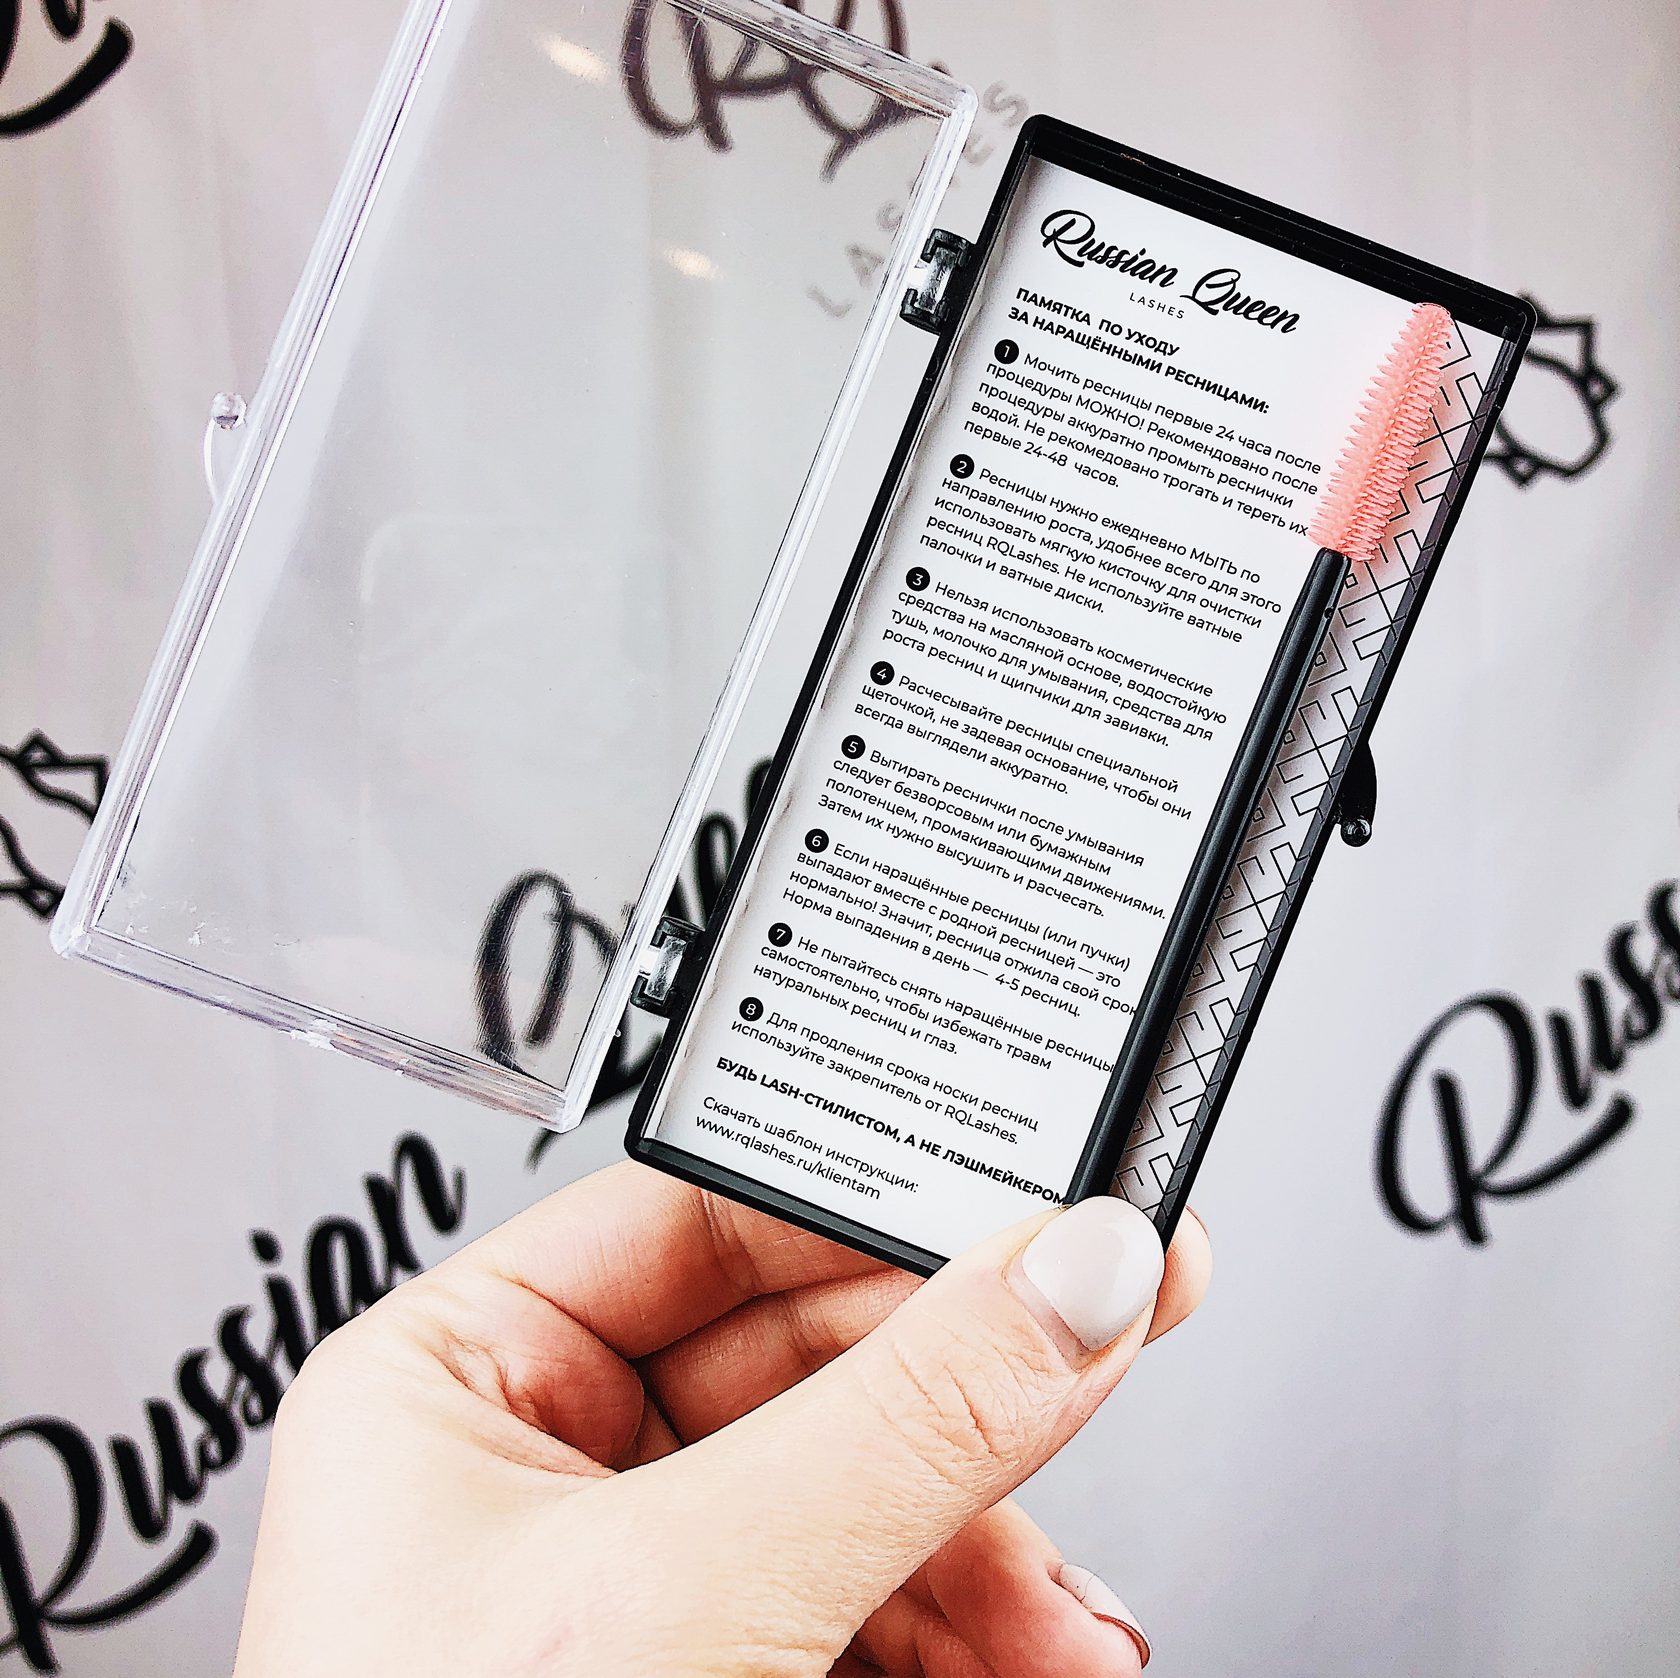 Russian Queen
LASHES
ПАМЯТКА ПО УХОДУ
ЗА НАРАЩЁННЫМИ РЕСНИЦАМИ:
1 Мочить ресницы первые 24 часа после
процедуры МОЖНО! Рекомендовано после
процедуры аккуратно промыть реснички
водой. Не рекомедовано трогать и тереть их
первые 24-48 часов.
2 Ресницы нужно ежедневно МЫТЬ по
направлению роста, удобнее всего для этого
использовать мягкую кисточку для очистки
ресниц RQLashes. Не используйте ватные
палочки и ватные диски.
3 Нельзя использовать косметические
средства на масляной основе, водостойкую
тушь, молочко для умывания, средства для
роста ресниц и щипчики для завивки.
4 Расчесывайте ресницы специальной
щеточкой, не задевая основание, чтобы они
всегда выглядели аккуратно.
5 Вытирать реснички после умывания
следует безворсовым или бумажным
полотенцем, промакивающими движениями.
Затем их нужно высушить и расчесать.
6 Если наращённые ресницы (или пучки)
выпадают вместе с родной ресницей — это
нормально! Значит, ресница отжила свой срок
Норма выпадения в день — 4-5 ресниц.
7 Не пытайтесь снять наращённые ресницы
самостоятельно, чтобы избежать травм
натуральных ресниц и глаз.
8 Для продления срока носки ресниц
используйте закрепитель от RQLashes.
БУДЬ LASH-СТИЛИСТОМ, А НЕ ЛЭШМЕЙКЕРОМ
Скачать шаблон инструкции:
www.rqlashes.ru/klientam
LASHES
Russian
Russ